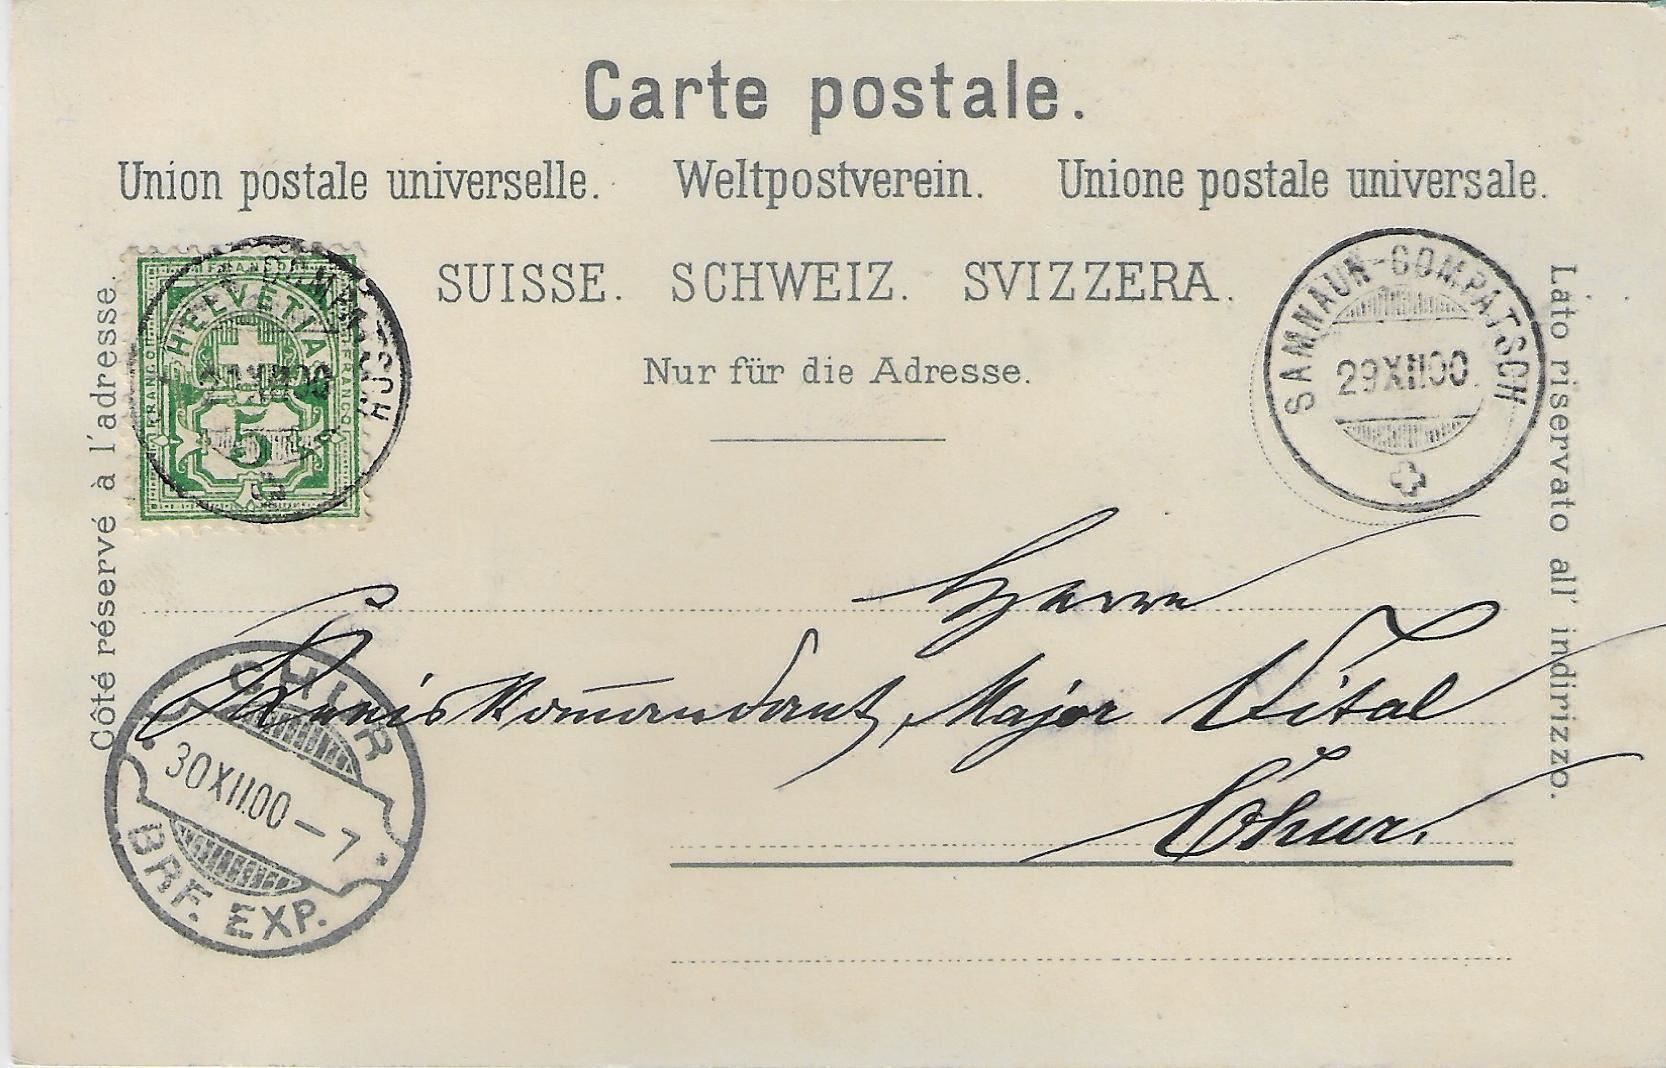 Carte postale.
Union postale universelle. Weltpostverein. Unione postale universale.
SUISSE. SCHWEIZ. SVIZZERA.
Nur für die Adresse.
Côté réservé à l'adresse.
Lato riservato all' indirizzo.
FRANCO HELVETIA FRANCO
5
COMPATSCH
SAMNAUN-COMPATSCH
29XII00
Herrn
Kreiskommandant, Major Vital
Chur.
CHUR
30XII.00-7
BRF. EXP.